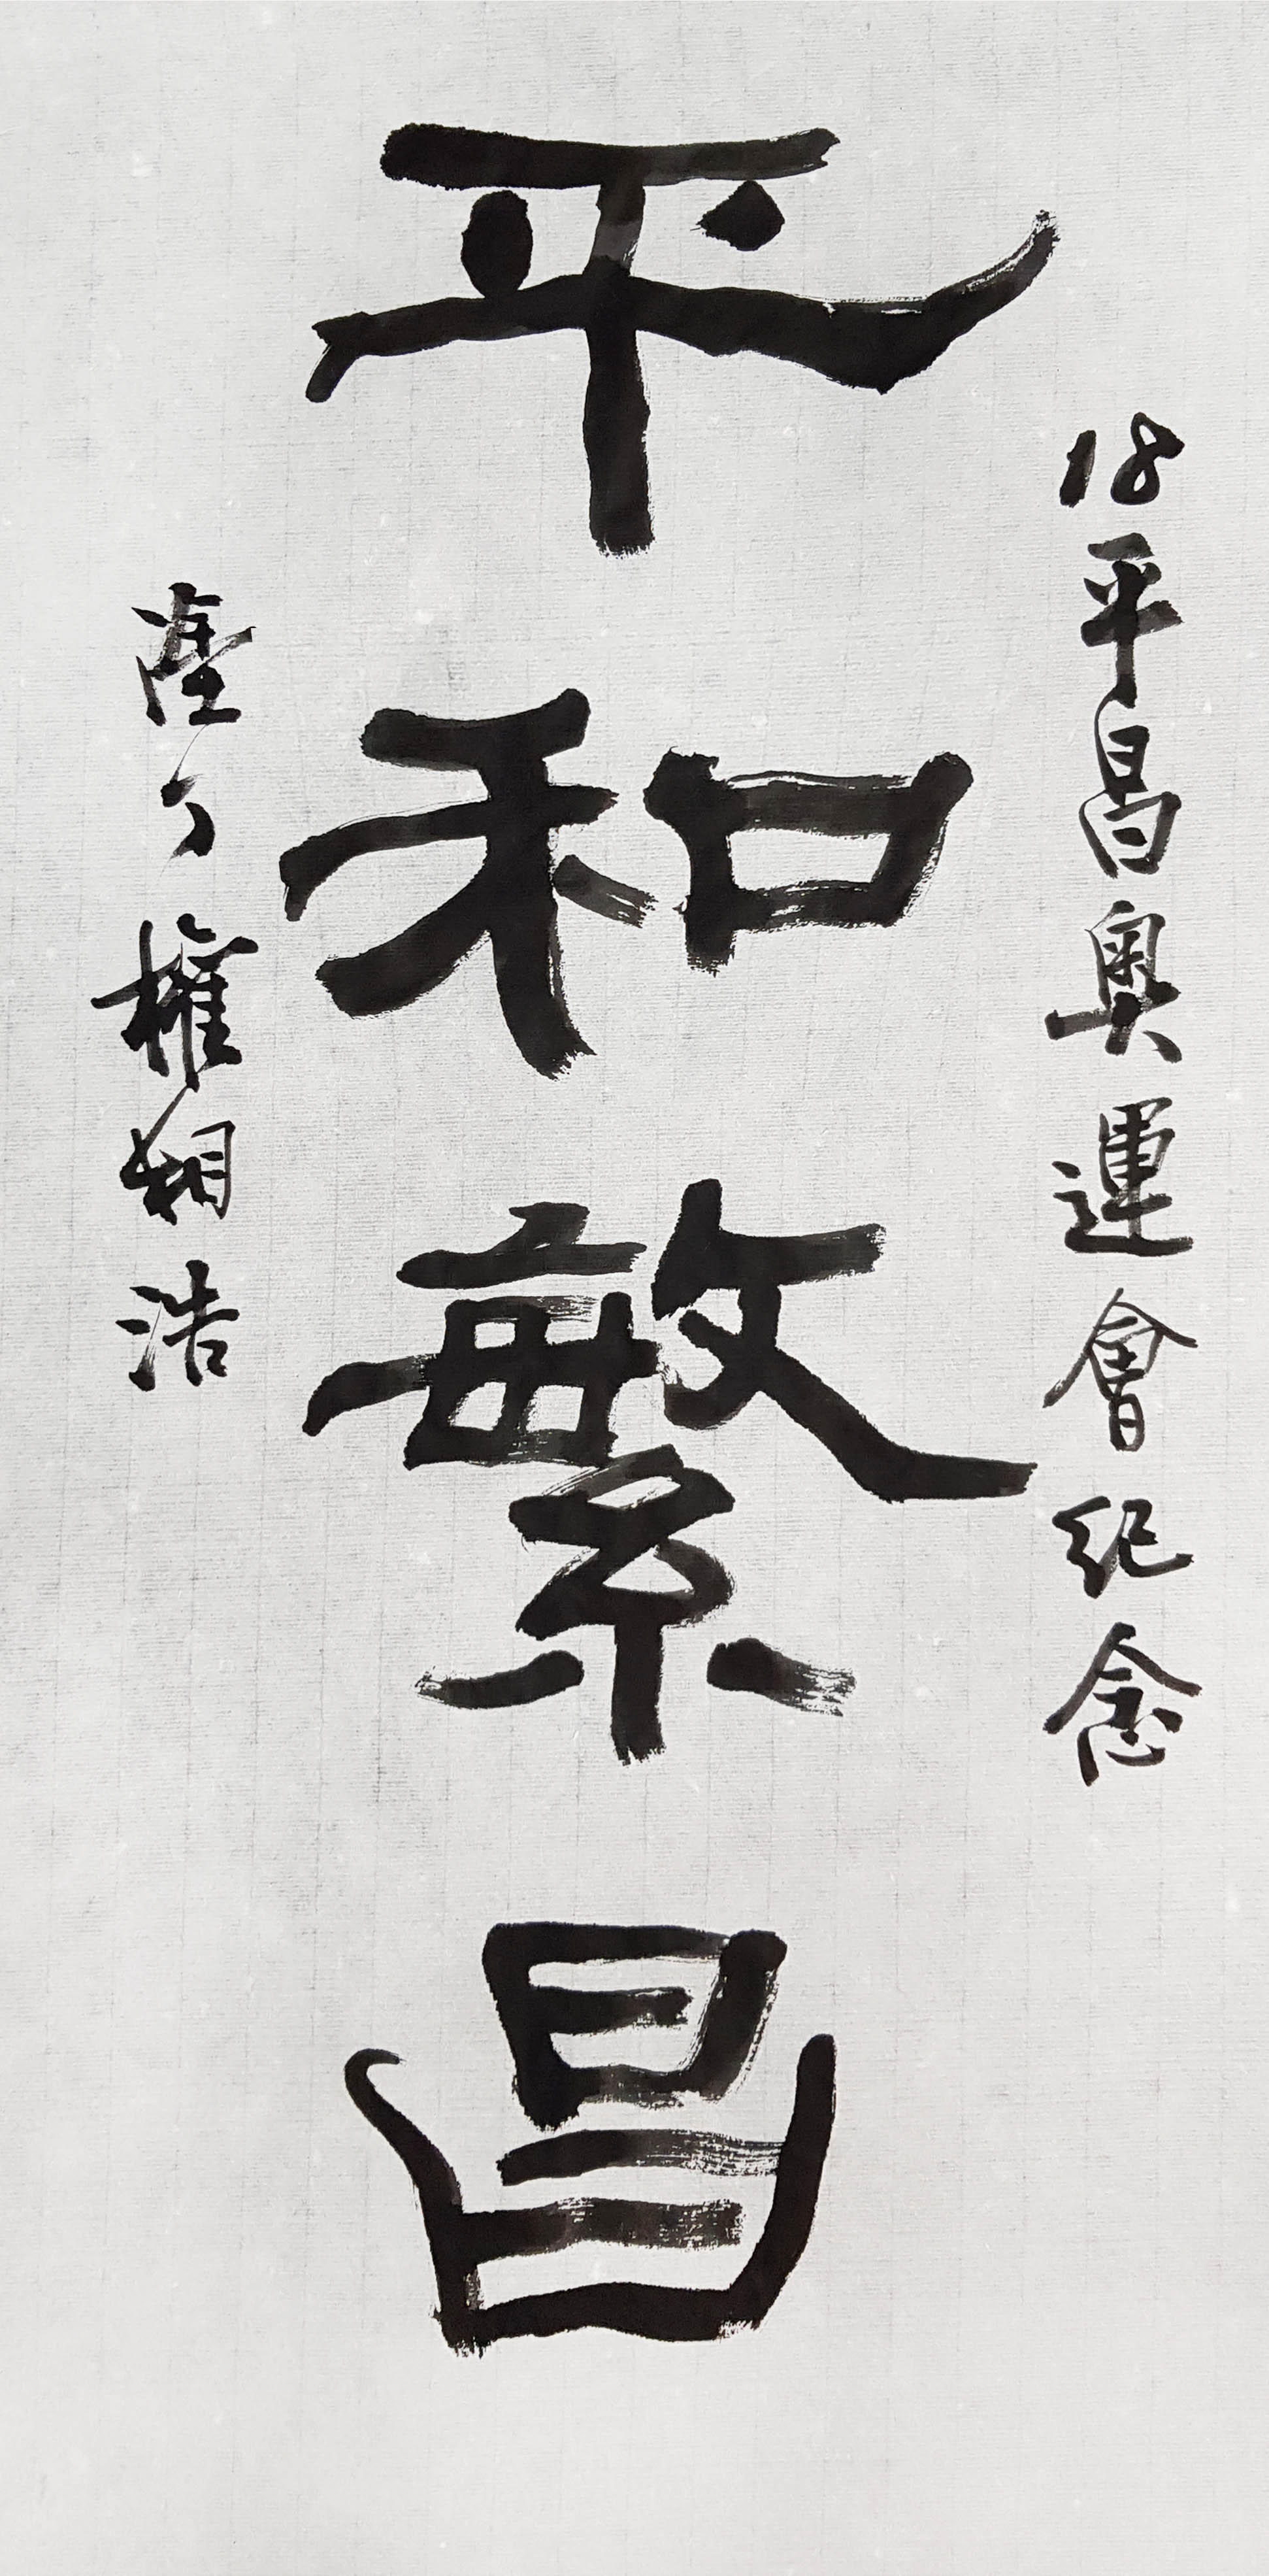 18平昌奧運會紀念
平和繁昌
塗丁權相浩